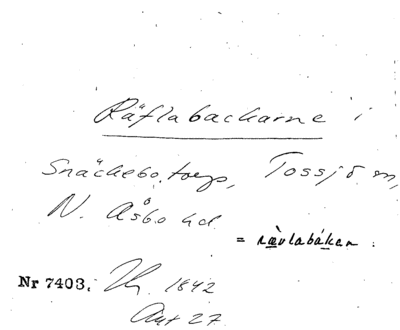 Räflabackarne i
Snäckebo torp, Tossjö m,
N. Åsbo hd.
= rævlabákan.
Nr 7403. 1842
Akt 27